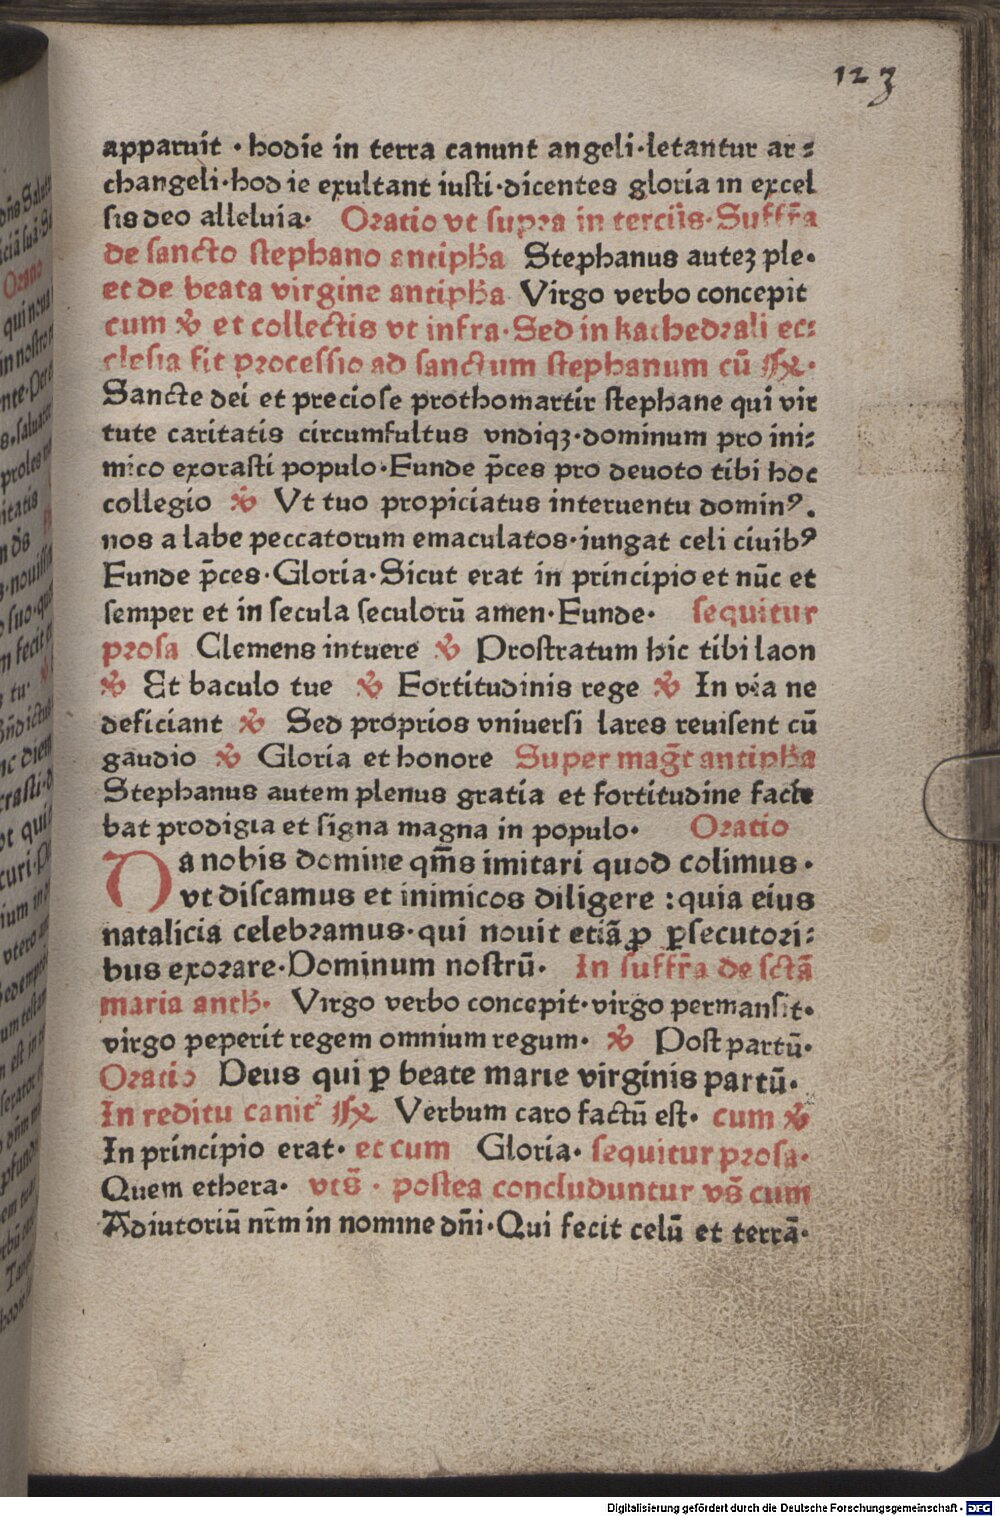 123
apparuit · hodie in terra canunt angeli·letantur ar⸗
changeli·hodie exultant iusti·dicentes gloria in excel
sis deo alleluia· Oratio vt supra in terciis·Suffr̄a
de sancto stephano antiph̄a Stephanus auteʒ ple·
et de beata virgine antiph̄a Virgo verbo concepit
cum ℣ et collectis vt infra·Sed in kathedrali ec⸗
clesia fit processio ad sanctum stephanum cū ℟·
Sancte dei et preciose prothomartir stephane qui vir
tute caritatis circumfultus vndiqʒ·dominum pro ini⸗
mico exorasti populo·Funde p̄ces pro deuoto tibi hoc
collegio ℣ Vt tuo propiciatus interuentu dominꝰ.
nos a labe peccatorum emaculatos·iungat celi ciuibꝰ
Funde p̄ces·Gloria·Sicut erat in principio et nūc et
semper et in secula seculorū amen·Funde· sequitur
prosa Clemens intuere ℣ Prostratum hic tibi laon
℣ Et baculo tue ℣ Fortitudinis rege ℣ In via ne
deficiant ℣ Sed proprios vniuersi lares reuisent cū
gaudio ℣ Gloria et honore Super mag̅t antiph̄a
Stephanus autem plenus gratia et fortitudine facie
bat prodigia et signa magna in populo· Oratio
Da nobis domine qm̄s imitari quod colimus·
vt discamus et inimicos diligere :quia eius
natalicia celebramus·qui nouit etiā ꝓ ꝑsecutori⸗
bus exorare·Dominum nostrū· In suffr̄a de sctā
maria anth̄· Virgo verbo concepit·virgo permansit·
virgo peperit regem omnium regum· ℣ Post partū·
Oratio Deus qui ꝑ beate marie virginis partū·
In reditu canit᷑ ℟ Verbum caro factū est· cum ℣
In principio erat· et cum Gloria· sequitur prosa·
Quem ethera· vts̄ · postea concluduntur vs̄ cum
Adiutoriū nr̄m in nomine dn̄i·Qui fecit celū et terrā·
Digitalisierung gefördert durch die Deutsche Forschungsgemeinschaft · DFG